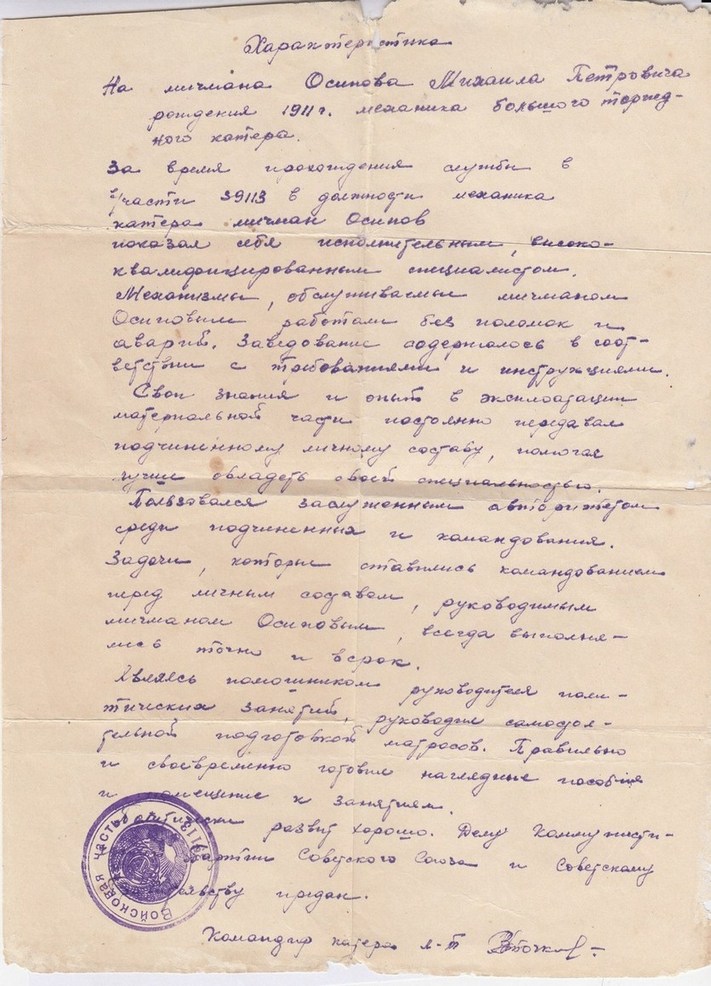 Характеристика
На мичмана Осипова Михаила Петровича
рождения 1911 г. механика большого торпед-
ного катера.
За время прохождения службы в
в/части 39113 в должности механика
катера мичман Осипов
показал себя исполнительным, высоко-
квалифицированным специалистом.
Механизмы, обслуживаемы мичманом
Осиповым работали без поломок и
аварий. Заведование содержалось в соот-
ветствии с требованиями и инструкциями.
Свои знания и опыт в эксплоатации
материальной части постоянно передавал
подчиненному личному составу, помогая
лучше овладеть своей специальностью.
Пользовался заслуженным авторитетом
среди подчиненных и командования.
Задачи, которые ставились командованием
перед личным составом, руководимым
мичманом Осиповым, всегда выполня-
лись точно и в срок.
Являясь помошником руководителя поли-
тических занятий, руководил самостоя-
тельной подготовкой матросов. Правильно
и своевременно готовил наглядные пособия
и помещение к занятиям.
Политически развит хорошо. Делу Коммунисти-
партии Советского Союза и Советскому
предан.
Командир катера л-т
Войсковая часть 39113